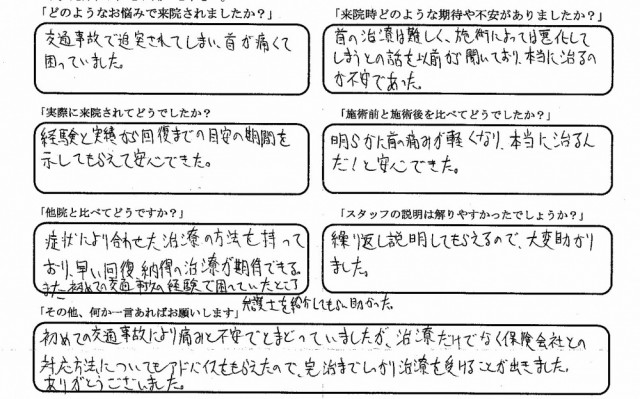 「どのようなお悩みで来院されましたか？」
交通事故で追突されてしまい、首が痛くて
困っていました。
「来院時どのような期待や不安がありましたか？」
首の治療は難しく、施術によっては悪化して
しまうとの話を以前から聞いており、本当に治るの
か不安であった。
「実際に来院されてどうでしたか？
経験と実績から回復までの目安の期間を
示してもらえて安心できた。
「施術前と施術後を比べてどうでしたか？」
明らかに首の痛みが軽くなり、本当に治るん
だ！と安心できた。
「他院と比べてどうですか？」
症状により合わせた治療の方法を持って
おり、早い回復、納得の治療が期待できる。
また初めての交通事故の経験で困っていたところ
弁護士を紹介してもらい助かった。
「スタッフの説明は解りやすかったでしょうか？」
繰り返し説明してもらえるので、大変助かり
ました。
「その他、何か一言あればお願いします」
初めての交通事故により痛みと不安でとまどっていましたが、治療だけでなく保険会社との
対応方法についてもアドバイスをもらえたので、完治までしっかり治療を受けることが出きました。
ありがとうございました。